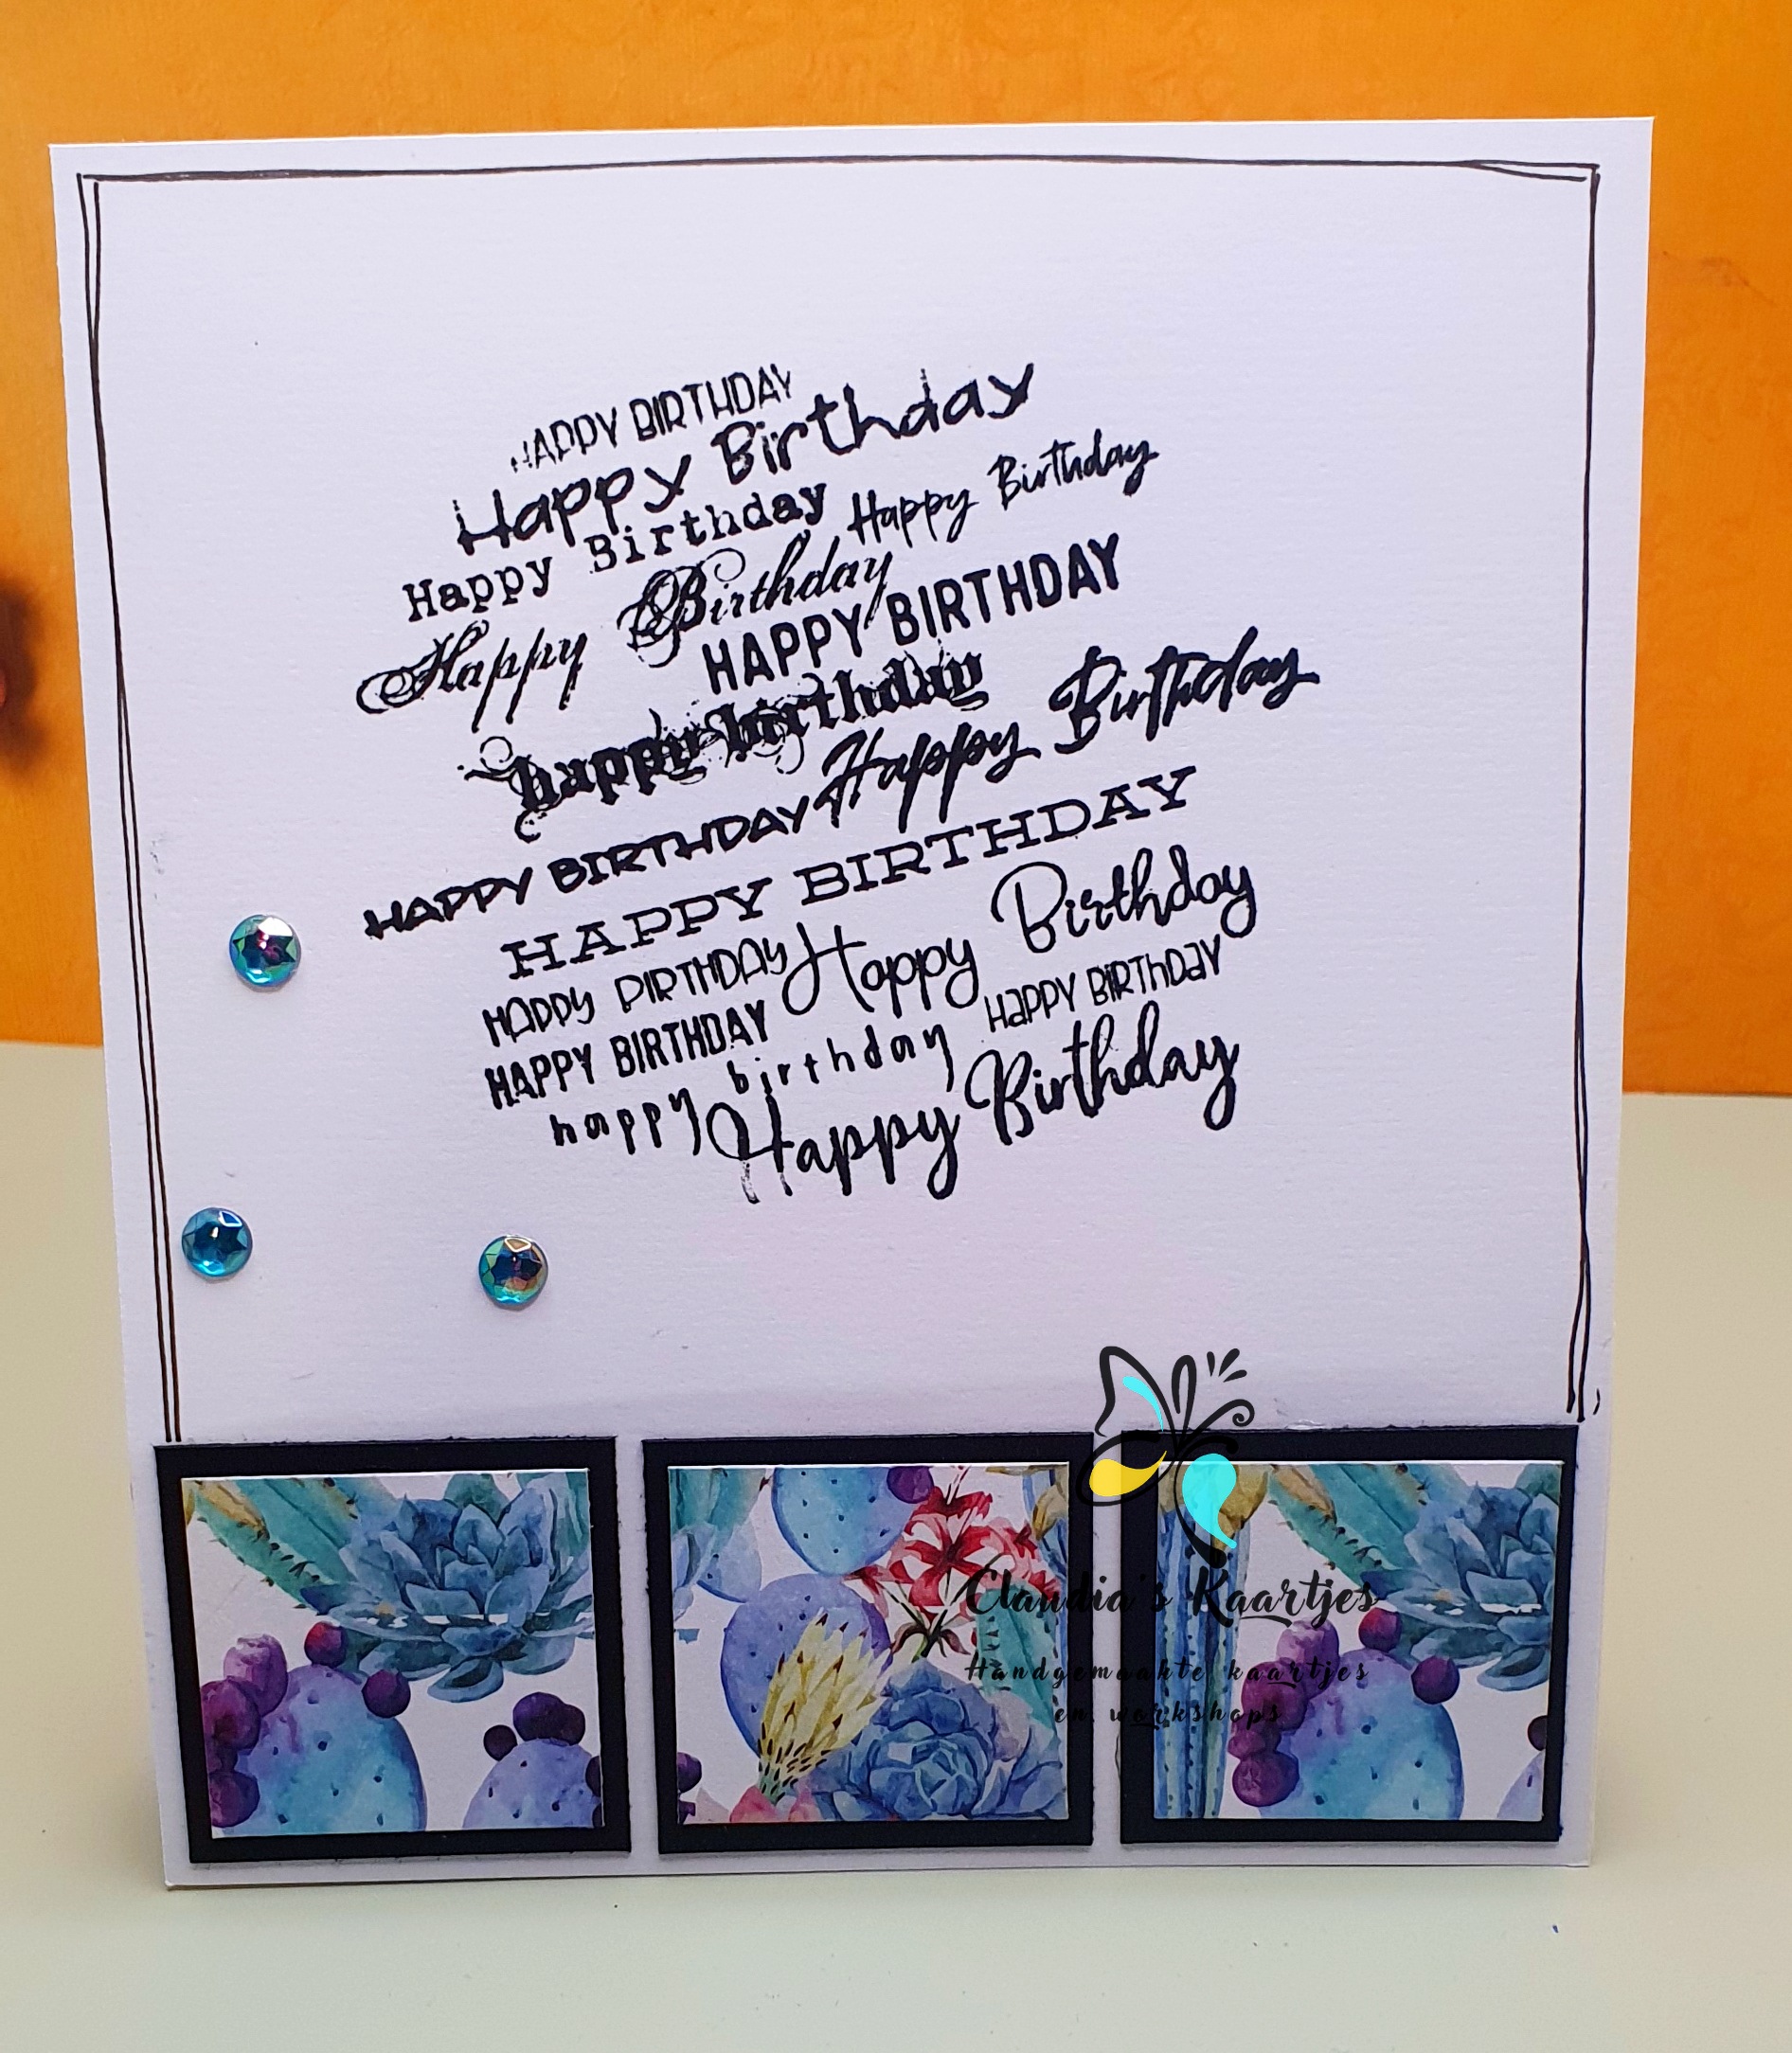 HAPPY BIRTHDAY
Happy Birthday
Happy Birthday
Happy Birthday
Happy Birthday
HAPPY BIRTHDAY
happy birthday
Happy Birthday
HAPPY BIRTHDAY
HAPPY BIRTHDAY
Happy Birthday
HAPPY BIRTHDAY
HAPPY BIRTHDAY
HaPPY BiRTHDaY
happy birthday
Happy Birthday
Claudia's Kaartjes
Handgemaakte kaartjes
en workshops